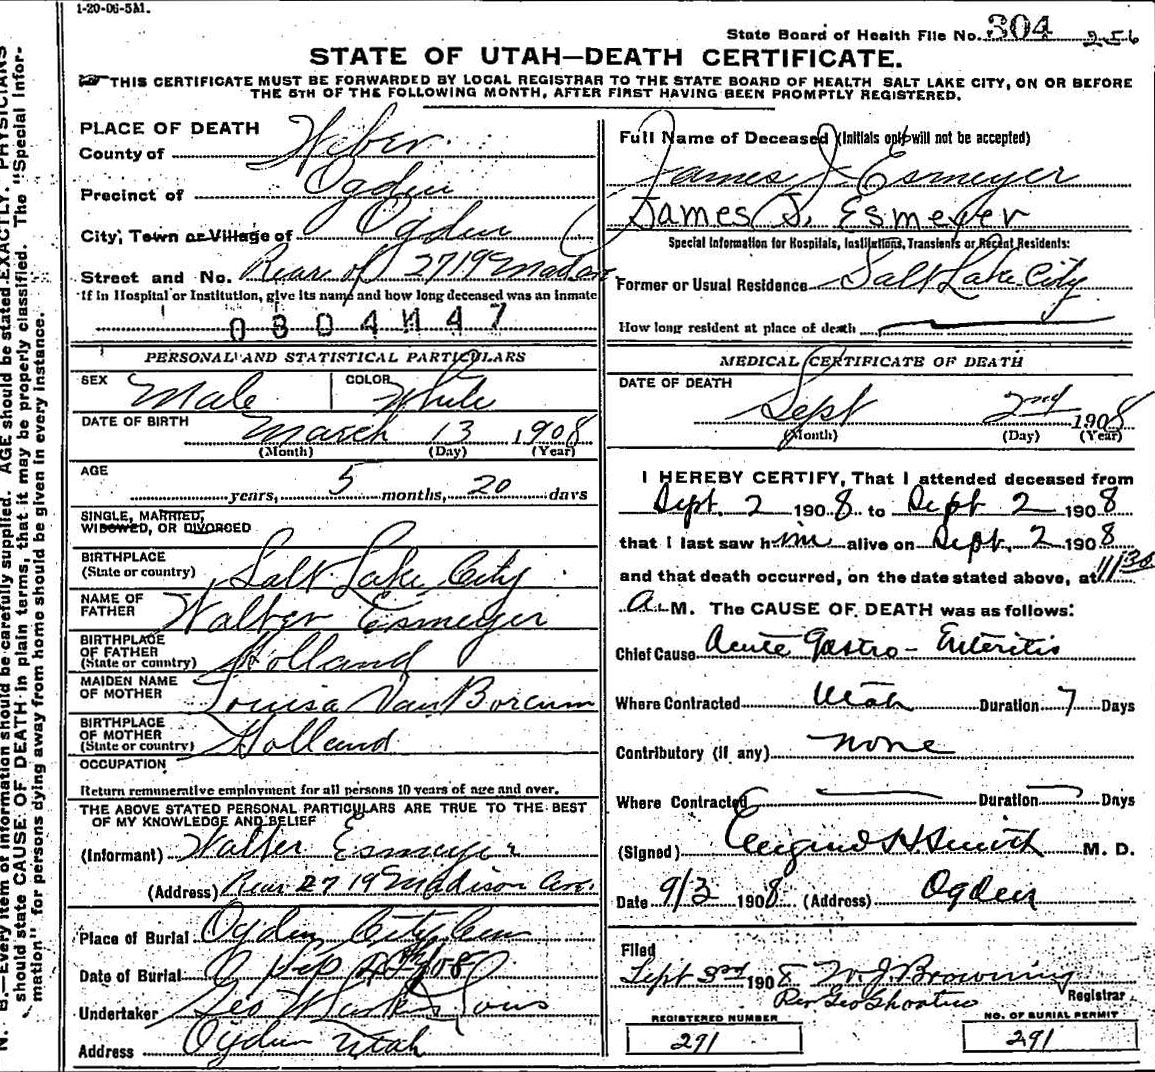 1-20-06-5M.
State Board of Health File No. 304 256
STATE OF UTAH—DEATH CERTIFICATE.
THIS CERTIFICATE MUST BE FORWARDED BY LOCAL REGISTRAR TO THE STATE BOARD OF HEALTH SALT LAKE CITY, ON OR BEFORE
THE 5TH OF THE FOLLOWING MONTH, AFTER FIRST HAVING BEEN PROMPTLY REGISTERED.
PLACE OF DEATH
County of Weber
Precinct of Ogden
City, Town or Village of Ogden
Street and No. Rear of 2719 Madison
If in Hospital or Institution, give its name and how long deceased was an inmate
0804M47
PERSONAL AND STATISTICAL PARTICULARS
SEX Male COLOR White
DATE OF BIRTH March 13 1908
(Month) (Day) (Year)
AGE
years, 5 months, 20 days
SINGLE, MARRIED,
WIDOWED, OR DIVORCED
BIRTHPLACE
(State or country) Salt Lake City
NAME OF
FATHER Walter Esmeyer
BIRTHPLACE
OF FATHER
(State or country) Holland
MAIDEN NAME
OF MOTHER Louisa Van Borcum
BIRTHPLACE
OF MOTHER
(State or country) Holland
OCCUPATION
Return remunerative employment for all persons 10 years of age and over.
THE ABOVE STATED PERSONAL PARTICULARS ARE TRUE TO THE BEST
OF MY KNOWLEDGE AND BELIEF
(Informant) Walter Esmeyer
(Address) Rear 2719 Madison Ave.
Place of Burial Ogden City Cem
Date of Burial Sep 4th/08
Undertaker Geo Sons
Address Ogden Utah
Full Name of Deceased (Initials only will not be accepted)
James J. Esmeyer
James J. Esmeyer
Special Information for Hospitals, Institutions, Transients or Recent Residents:
Former or Usual Residence Salt Lake City
How long resident at place of death
MEDICAL CERTIFICATE OF DEATH
DATE OF DEATH
Sept 2nd 1908
(Month) (Day) (Year)
I HEREBY CERTIFY, That I attended deceased from
Sept. 2 1908 to Sept 2 1908
that I last saw him alive on Sept. 2 1908
and that death occurred, on the date stated above, at 11/30
A. M. The CAUSE OF DEATH was as follows:
Chief Cause Acute Gastro-Enteritis
Where Contracted Utah Duration 7 Days
Contributory (if any) none
Where Contracted Duration Days
(Signed) H Smith M. D.
Date 9/3 1908 (Address) Ogden
Filed
Sept 3rd 1908 W. J. Browning
Per Geo Registrar
REGISTERED NUMBER
291
NO. OF BURIAL PERMIT
291
N. B.—Every item of information should be carefully supplied. AGE should be stated EXACTLY. PHYSICIANS
should state CAUSE OF DEATH in plain terms, that it may be properly classified. The "Special Infor-
mation" for persons dying away from home should be given in every instance.